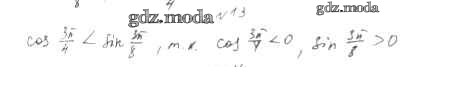 gdz.moda №13 gdz.moda
cos 3π/4 < sin 3π/8, т.к. cos 3π/4 < 0, sin 3π/8 > 0